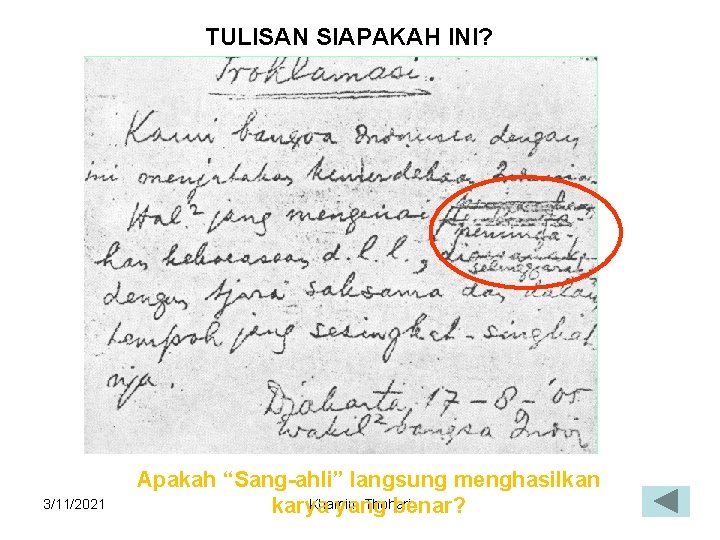 TULISAN SIAPAKAH INI?
Proklamasi.
Kami bangsa Indonesia dengan
ini menjatakan kemerdekaan Indonesia.
Hal² jang mengenai
peminda-
han kekoeasaan d.l.l.,
diselenggarakan
dengan tjara saksama dan dalam
tempoh jang sesingkat-singkat
nja.
Djakarta, 17 - 8 - '05
Wakil² bangsa Indon
Apakah “Sang-ahli” langsung menghasilkan
karya yang benar?
3/11/2021
Thohari